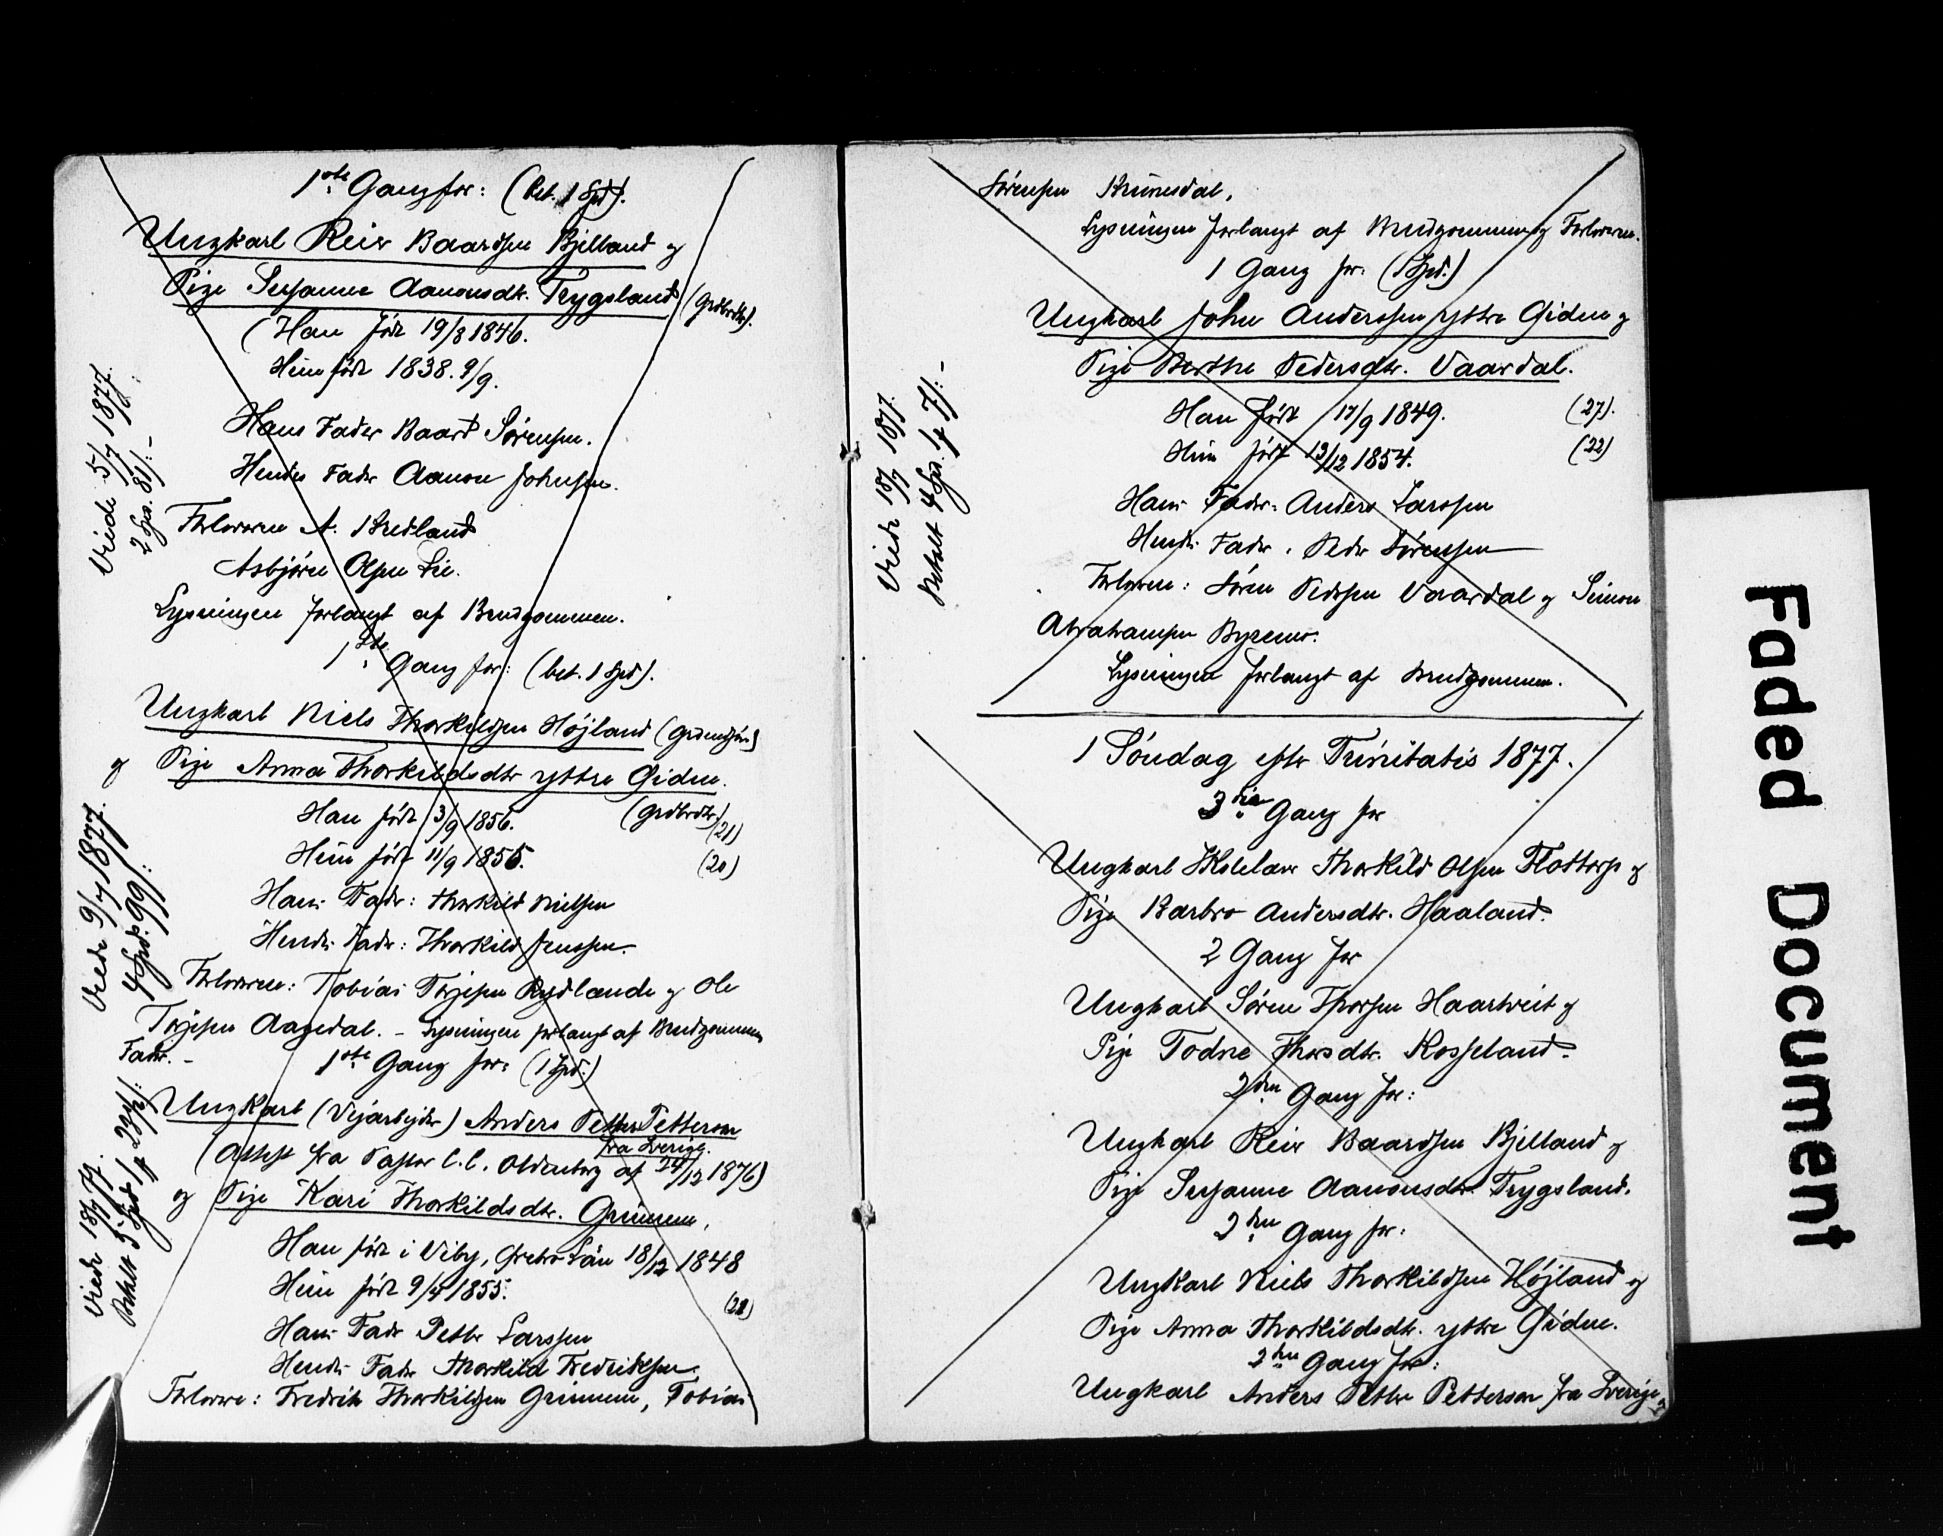 1ste Gang for: (bet. 1 Spd).
Ungkarl Reier Baardsen Bjelland og
Pige Susanne Aanonsdtr. Trygsland. (Grdbrdtr).
(Han født 19/8 1846.
Hun født 1838. 9/9.
Hans Fader Baard Sørensen.
Hendes Fader Aanon Johnsen.
Forlovere A. Bredland
Asbjörn Olsen Lie.
Lysningen forlangt af Brudgommen.
Viede 5/7 1877.
2 Spd. 81/:-
1ste Gang for: (bet. 1 Spd).
Ungkarl Niels Thorkildsen Højland
og Pige Anna Thorkildsdtr yttre Øidne.
Han født 3/9 1856. (Grdbrdtr.) (21)
Hun født 11/9 1856. (20)
Hans Fader: Thorkild Nielsen
Hendes Fader: Thorkild Jenssen.
Forlovere: Tobias Torjesen Rydlende og Ole
Torjesen Aagedal. – Lysningen forlangt af Brudgommens
Fader. –
Viede 9/7 1877.
4 Spd. 99/:
1ste Gang for: (1 Spd.)
Ungkarl (Vejarbejder) Anders Petter Petterson
fra Sverige.
(Attest fra Pastor C. C. Oldenborg af 24/12 1876)
og Pige Kari Thorkildsdtr. Grimnm,
Han født i Viby, Ørebro Län 18/12 1848
Hun født 9/4 1855. (22)
Hans Fader Petter Larssen
Hendes Fader Thorkild Fredriksen.
Forlovere: Fredrik Thorkildsen Grimnm, Tobias
Viede 18/7 77.
Betalt 5 Spd 1 # 23/:
Sørensen Kunesdal,
Lysningen forlangt af Brudgommen og Forlovere.
1 Gang for: (1 Spd.)
Ungkarl John Anderssen yttre Øidne og
Pige Berthe Pedersdtr. Vaardal.
Han født 17/9 1849. (27).
Hun født 13/12 1854. (22)
Hans Fader: Anders Larssen
Hendes Fader: Peder Sørensen
Forlovere: Søren Pedersen Vaardal og Simon
Abrahamsen Byremo.
Lysningen forlangt af Brudgommen.
Viede 18/7 1877.
Betalt 4 Spd. 1 # 7/:-
1 Søndag efter Trinitatis 1877.
3die Gang for
Ungkarl Skolelærer Thorkild Olsen Flottorp og
Pige Barbro Andersdtr. Haaland.
2 Gang for
Ungkarl Søren Thorsen Haartveit og
Pige Todne Thorsdtr. Rosseland.
2den Gang for:
Ungkarl Reier Baardsen Bjelland og
Pige Susanne Aanonsdtr. Trygsland.
2den Gang for:
Ungkarl Niels Thorkildsen Højland og
Pige Anna Thorkildsdtr. yttre Øidne.
2den Gang for:
Ungkarl Anders Petter Petterson fra Sverige
Faded Document